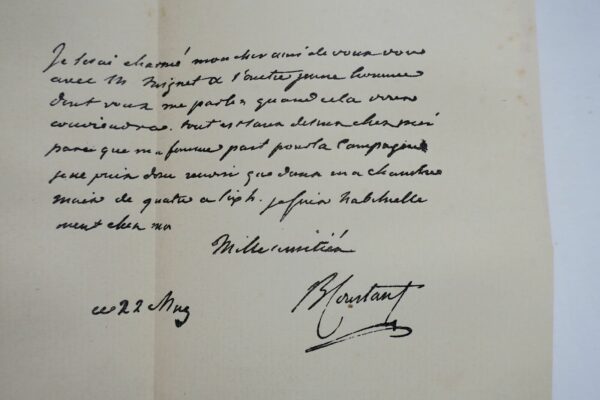 Je serai charmé mon cher ami de vous voir
avec M Mignet & l'autre jeune homme
dont vous me parlez quand cela vous
conviendra. tout est sans dessus chez moi
parce que ma femme part pour la Campagne
je ne puis donc recevoir que dans ma chambre
mais de quatre a six h. je suis habituelle
ment chez moi
Mille amitiés
ce 22 May
B Constant